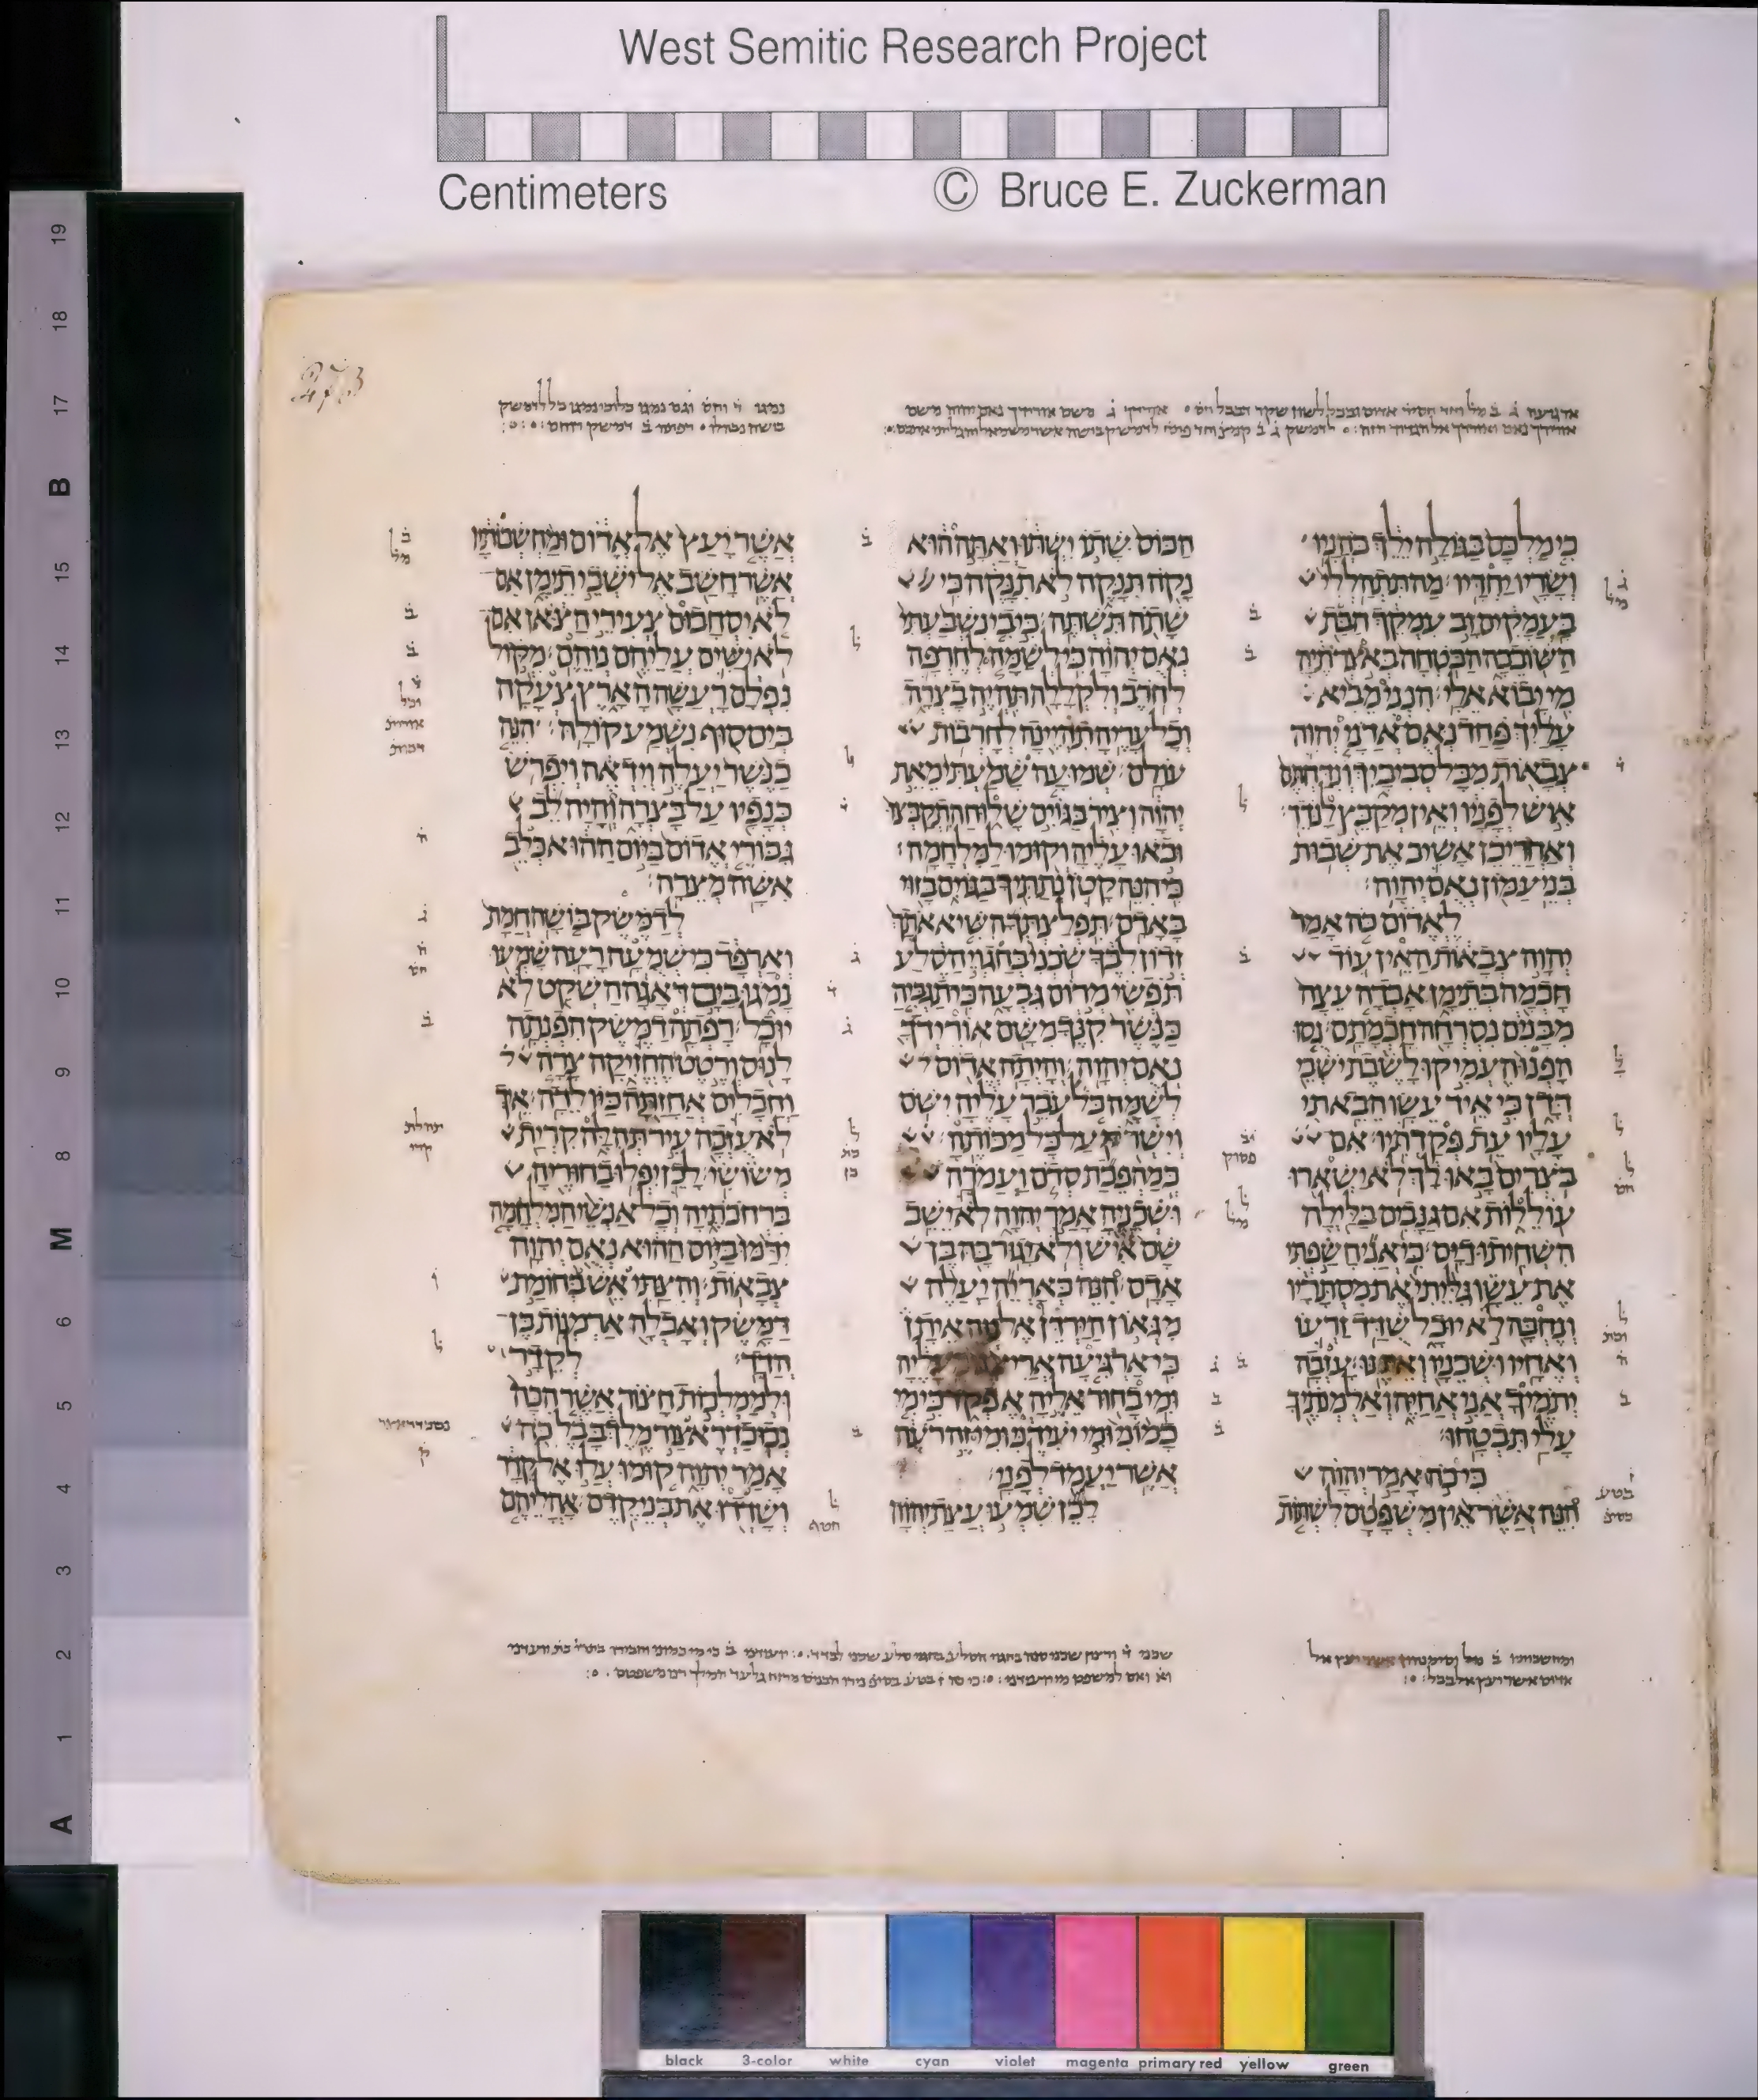 West Semitic Research Project
Centimeters © Bruce E. Zuckerman
19
18
17
B
15
14
13
12
11
10
9
8
M
6
5
4
3
2
1
A
273
כי מלכם בגולה ילך כהניו
ושריו יחדיו׃ מה תתהללי
בעמקים זב עמקך הבת
השובבה הבטחה באצרתיה
מי יבוא אלי׃ הנני מביא
עליך פחד נאם אדני יהוה
צבאות מכל סביביך ונדחתם
איש לפניו ואין מקבץ לנדד׃
ואחרי כן אשיב את שבות
בני עמון נאם יהוה׃
לאדום כה אמר
יהוה צבאות האין עוד
חכמה בתימן אבדה עצה
מבנים נסרחה חכמתם׃ נסו
הפנו העמיקו לשבת ישבי
דדן כי איד עשו הבאתי
עליו עת פקדתיו׃ אם
בצרים באו לך לא ישארו
עוללות אם גנבים בלילה
השחיתו דים׃ כי אני חשפתי
את עשו גליתי את מסתריו
ונחבה לא יוכל שדד זרעו
ואחיו ושכניו ואיננו׃ עזבה
יתמיך אני אחיה ואלמנתיך
עלי תבטחו׃
כי כה אמר יהוה
הנה אשר אין משפטם לשתות
הכוס שתו ישתו ואתה הוא
נקה תנקה לא תנקה כי
שתה תשתה׃ כי בי נשבעתי
נאם יהוה כי לשמה לחרפה
לחרב ולקללה תהיה בצרה
וכל עריה תהיינה לחרבות
עולם׃ שמועה שמעתי מאת
יהוה וציר בגוים שלוח התקבצו
ובאו עליה וקומו למלחמה׃
כי הנה קטן נתתיך בגוים בזוי
באדם׃ תפלצתך השיא אתך
זדון לבך שכני בחגוי הסלע
תפשי מרום גבעה כי תגביה
כנשר קנך משם אורידך
נאם יהוה׃ והיתה אדום
לשמה כל עבר עליה ישם
וישרק על כל מכותה׃
כמהפכת סדם ועמרה
ושכניה אמר יהוה לא ישב
שם איש ולא יגור בה בן
אדם׃ הנה כאריה יעלה
מגאון הירדן אל נוה איתן
כי ארגיעה אריצנו מעליה
ומי בחור אליה אפקד כי מי
כמוני ומי יעידני ומי זה רעה
אשר יעמד לפני׃
לכן שמעו עצת יהוה
אשר יעץ אל אדום ומחשבותיו
אשר חשב אל ישבי תימן אם
לוא יסחבום צעירי הצאן אם
לא ישים עליהם נוהם׃ מקול
נפלם רעשה הארץ צעקה
בים סוף נשמע קולה׃ הנה
כנשר יעלה וידאה ויפרש
כנפיו על בצרה והיה לב
גבורי אדום ביום ההוא כלב
אשה מצרה׃
לדמשק בושה חמת
וארפד כי שמעה רעה שמעו
נמגו בים דאגה השקט לא
יוכל׃ רפתה דמשק הפנתה
לנוס ורטט החזיקה צרה
וחבלים אחזתה כיולדה׃ איך
לא עזבה עיר תהלה קרית
משושי׃ לכן יפלו בחוריה
ברחבתיה וכל אנשי המלחמה
ידמו ביום ההוא נאם יהוה
צבאות׃ והצתי אש בחומת
דמשק ואכלה ארמנות בן
הדד׃ לקדר
ולממלכות חצור אשר הכה
נבוכדראצור מלך בבל כה
אמר יהוה קומו עלו אל קדר
ושדדו את בני קדם׃ אהליהם
black 3-color white cyan violet magenta primary red yellow green